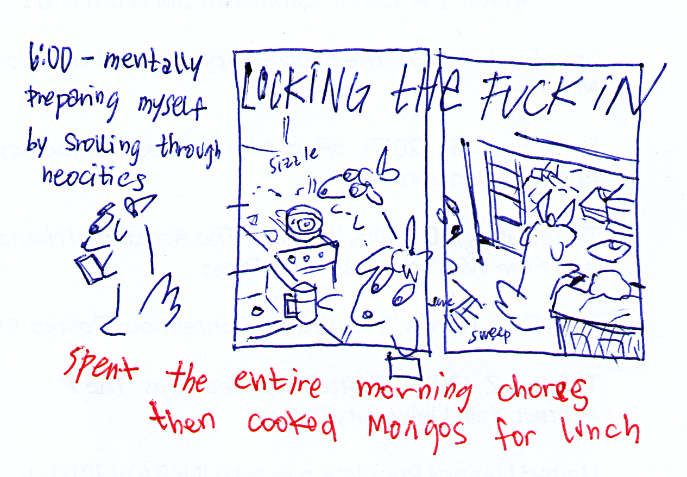 6:00 - mentally
preparing myself
by srolling through
neocities
LOCKING THE FUCK IN
sizzle
sweep
spent the entire morning chores
then cooked Mongos for lunch